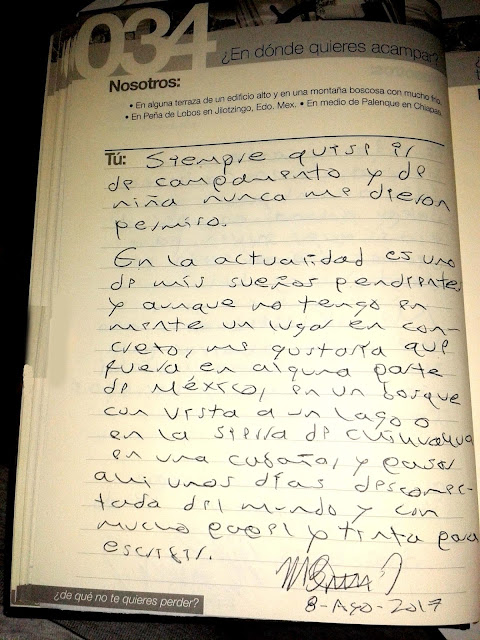 034
¿En dónde quieres acampar?
Nosotros:
• En alguna terraza de un edificio alto y en una montaña boscosa con mucho frío.
• En Peña de Lobos en Jilotzingo, Edo. Mex. • En medio de Palenque en Chiapas.
Tú: Siempre quise ir
de campamento y de
niña nunca me dieron
permiso.
En la actualidad es uno
de mis sueños pendientes
y aunque no tengo en
mente un lugar en con-
creto, me gustaría que
fuera en alguna parte
de México, en un bosque
con vista a un lago o
en la sierra de Chihuahua
en una cabaña, y pasar
ahi unos días desconec-
tada del mundo y con
mucho papel y tinta para
escribir.
8-Ago-2017
¿de qué no te quieres perder?